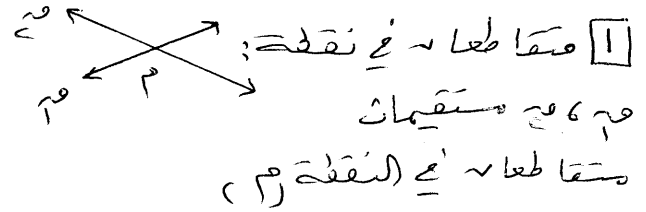 م
١ متقاطعان في نقطة:
مستقيمان
متقاطعان في النقطة (م)